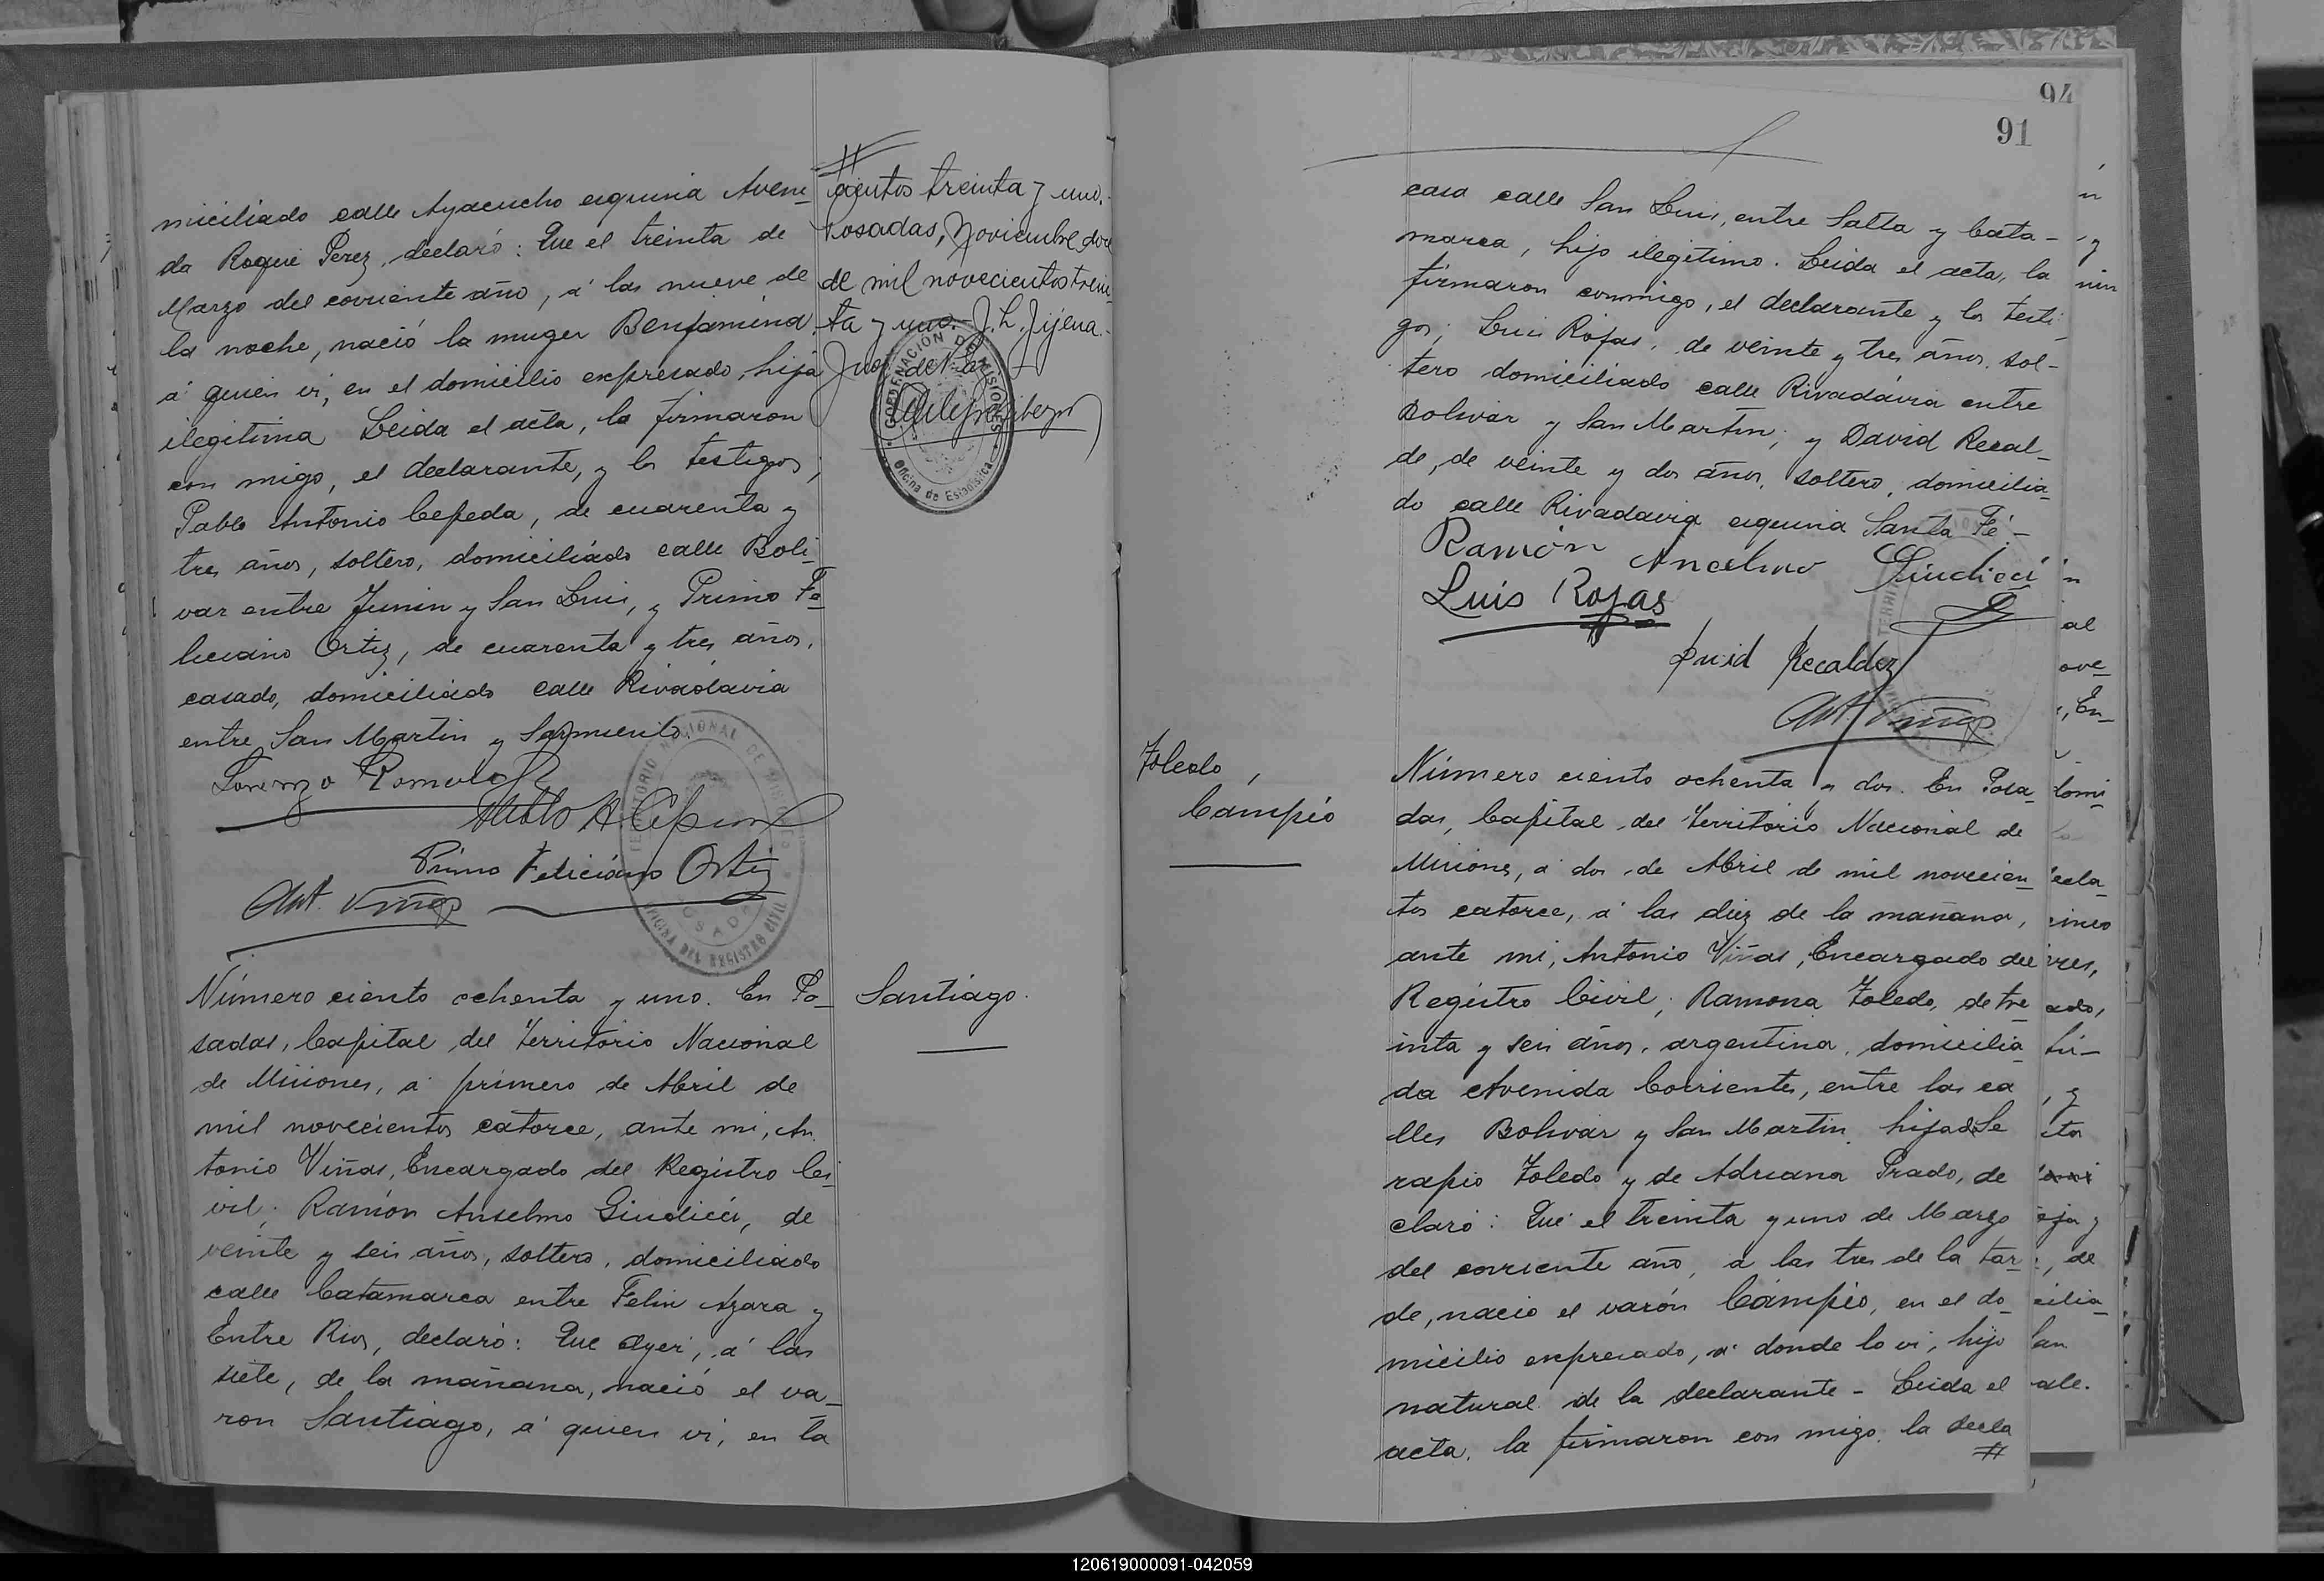 miciliado calle Ayacucho esquina Aveni-
da Roque Perez, declaró: Que el treinta de
Marzo del corriente año, á las nueve de
la noche, nació la muger Benjamina
á quien vi, en el domicilio expresado, hija
ilegitima Leida el acta, la firmaron
con migo, el declarante, y los testigos,
Pablo Antonio Cepeda, de cuarenta y
tres años, soltero, domiciliado calle Boli-
var entre Junin y San Luis, y Primo Fe-
liciano Ortiz, de cuarenta y tres años,
casado, domiciliado calle Rivadavia
entre San Martin y Sarmiento.
Lorenzo
Pablo A. Cepeda
Primo Feliciano Ortiz
Ant. Viñas
TERRITORIO NACIONAL DE MISIONES
POSADAS
OFICINA DEL REGISTRO CIVIL
Número ciento ochenta y uno. En Po-
sadas, Capital del Territorio Nacional
de Misiones, a primero de Abril de
mil novecientos catorce, ante mi, An
tonio Viñas, Encargado del Registro Ci-
vil; Ramón Anselmo Giudicci, de
veinte y seis años, soltero, domiciliado
calle Catamarca entre Felix Azara y
Entre Rios, declaró: Que ayer, á las
siete, de la mañana, nació el va-
ron Santiago, á quien vi, en la
#
cientos treinta y uno.-
Posadas, Noviembre doce
de mil novecientos trein-
ta y uno.- J. L. Jijena.-
Juez de
GOBERNACION DE MISIONES
Oficina de Estadistica
Santiago.
94
91
casa calle San Luis, entre Salta y Cata-
marca, hijo ilegitimo. Leida el acta, la
firmaron conmigo, el declarante y los testi-
gos; Luis Rojas, de veinte y tres años, sol-
tero domiciliado calle Rivadavia entre
Bolivar y San Martin; y David Recal-
de, de veinte y dos años, soltero, domicilia-
do calle Rivadavia esquina Santa Fé-
Ramón Ancelmo Giudicci
Luis Rojas
David Recaldez
Ant. Viñas
Toledo,
Cámpio
Número ciento ochenta y dos. En Posa-
das, Capital del Territorio Nacional de
Misiones, á dos de Abril de mil novecien-
tos catorce, á las diez de la mañana,
ante mi, Antonio Viñas, Encargado del
Registro Civil, Ramona Toledo, de tre
inta y seis años, argentina, domicilia
da Avenida Corrientes, entre las ca
lles Bolivar y San Martin, hija de Se
rapio Toledo y de Adriana Prado, de
claró: Que el treinta y uno de Marzo
del corriente año, a las tres de la tar-
de, nacio el varón Cámpio, en el do-
micilio expresado, á donde lo vi, hijo
natural de la declarante - Leida el
acta, la firmaron con migo, la decla
#
120619000091-042059